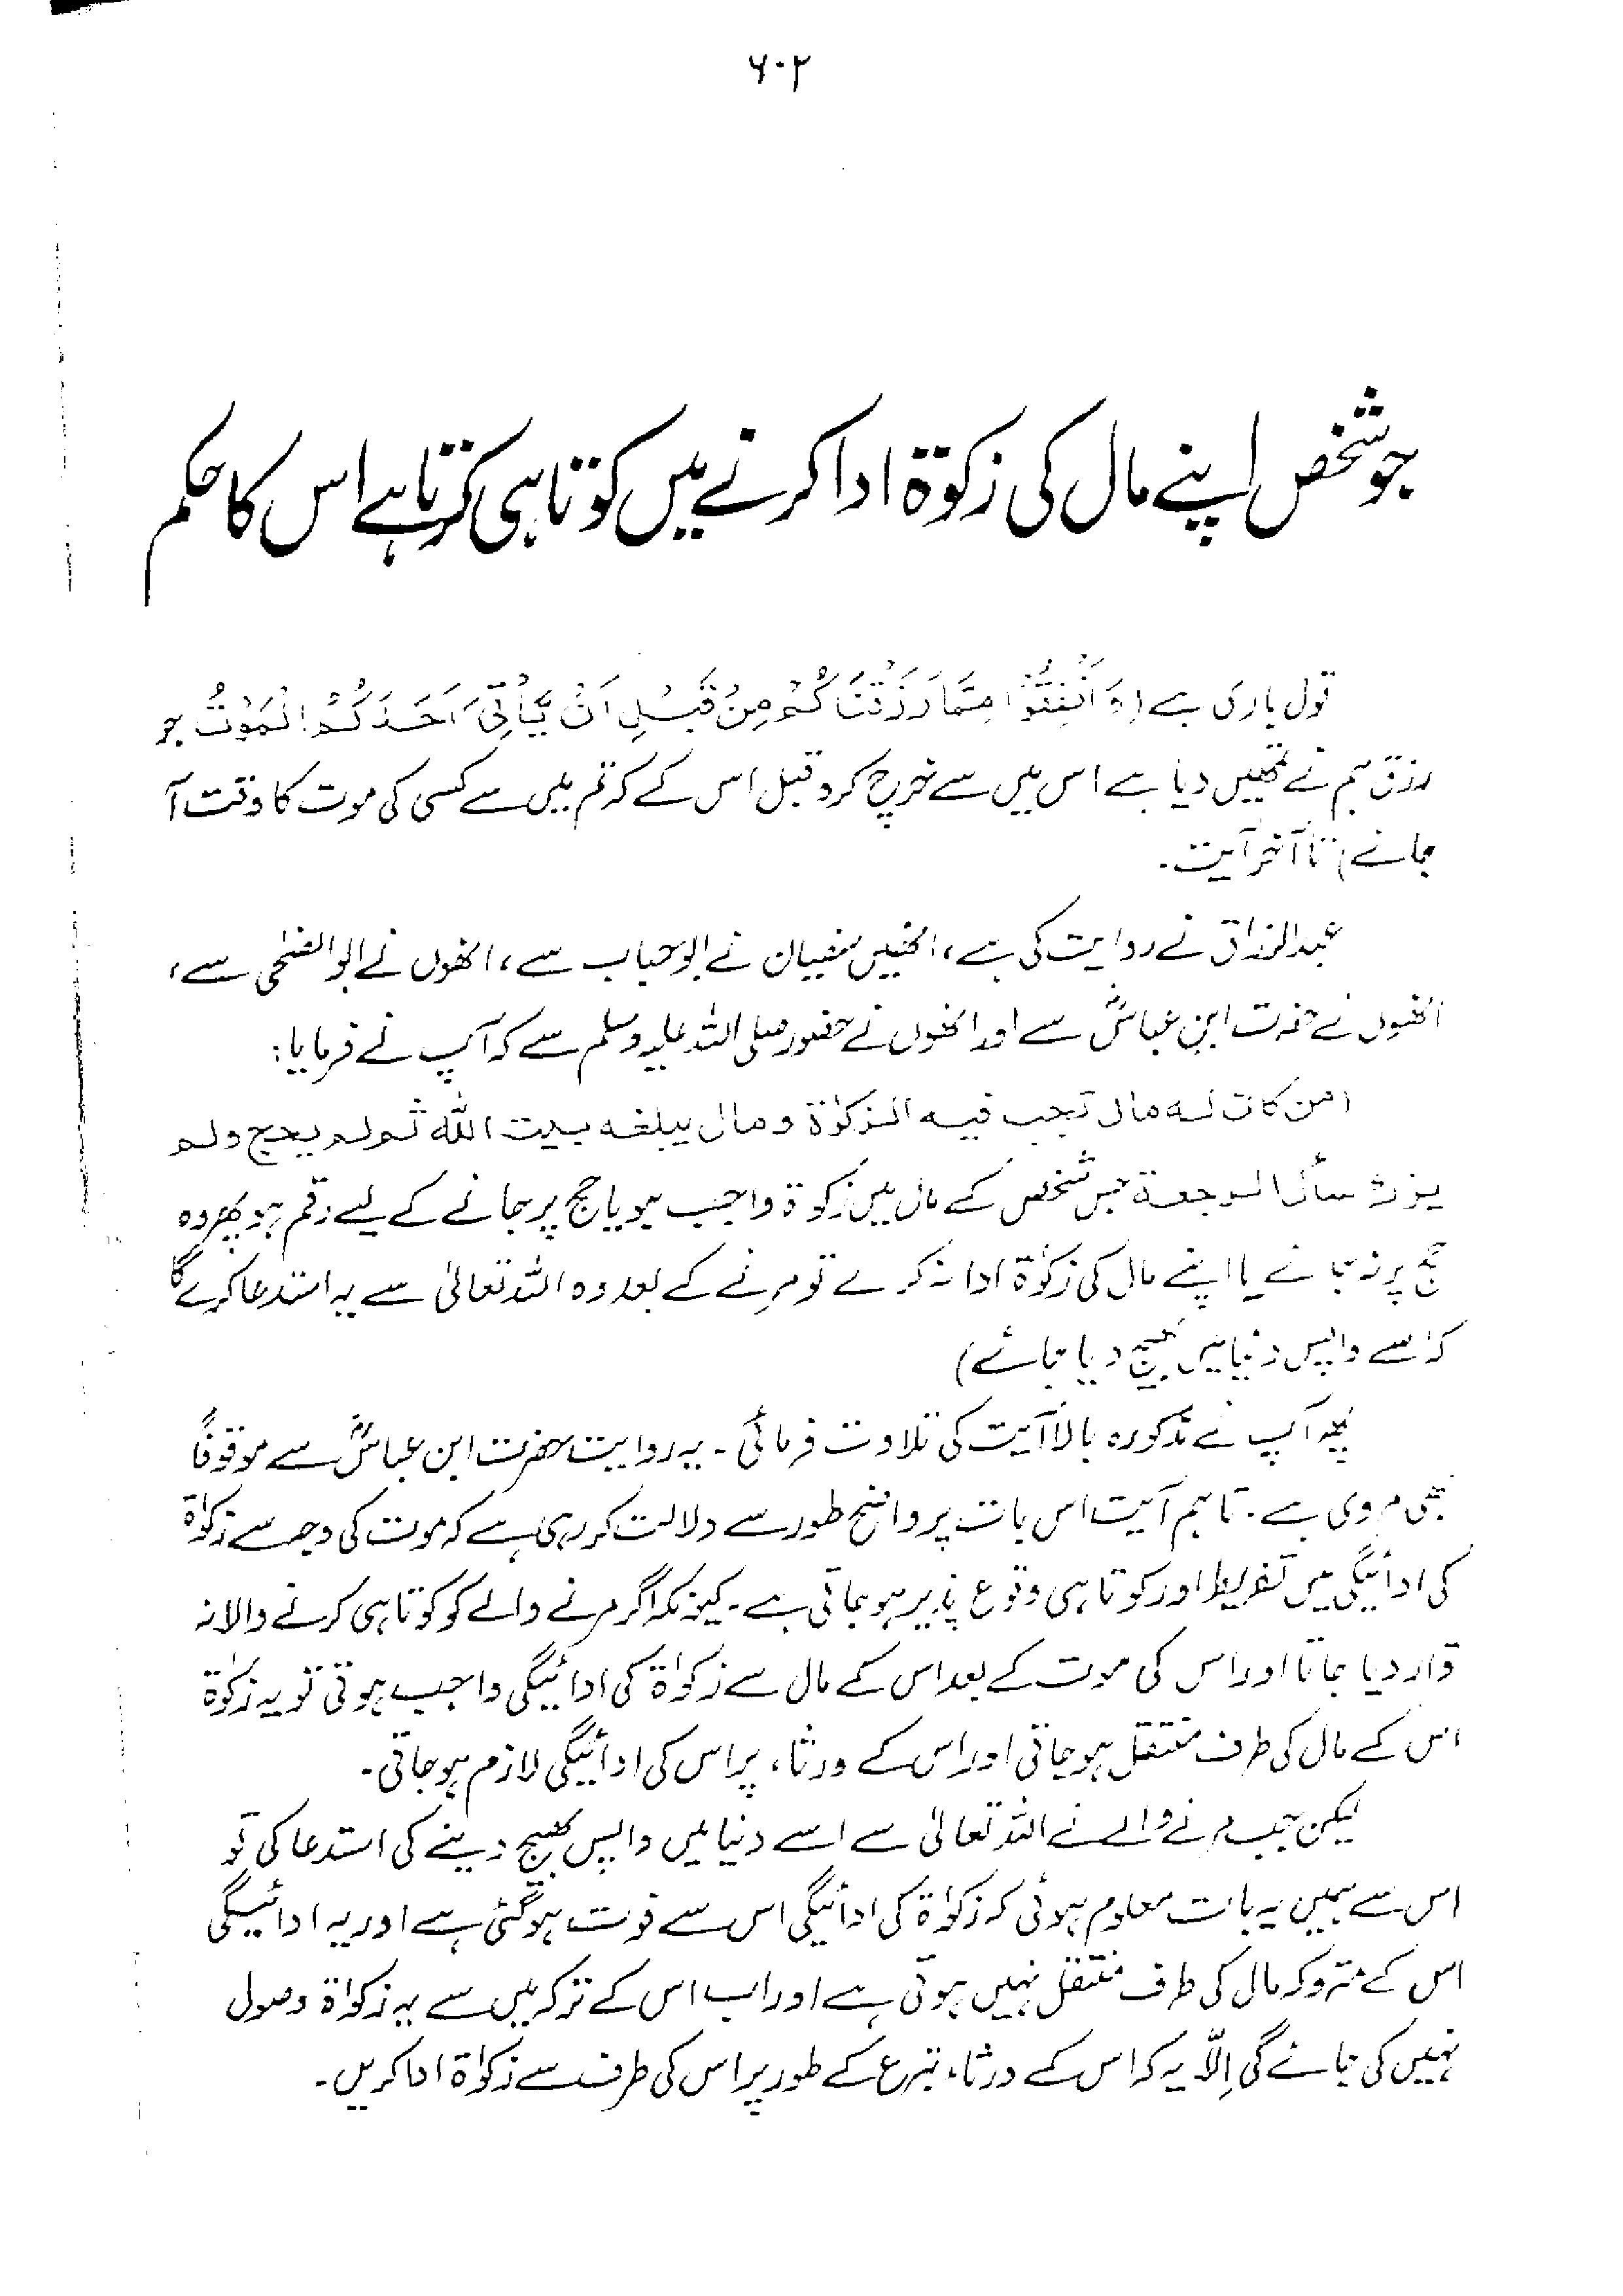 ۶۰۲
جو شخص اپنے مال کی زکوٰۃ ادا کرنے میں کوتاہی کرتا ہے اس کا حکم
قول باری ہے (وَاَنْفِقُوْا مِمَّا رَزَقْنَاكُمْ مِنْ قَبْلِ اَنْ يَّأْتِيَ اَحَدَكُمُ الْمَوْتُ جو
رزق ہم نے تمھیں دیا ہے اس میں سے خرچ کرو قبل اس کے کہ تم میں سے کسی کی موت کا وقت آ
جائے) تا آخر آیت۔
عبدالرزاق نے روایت کی ہے، انھیں سفیان نے ابو حباب سے، انھوں نے ابو الضحیٰ سے،
انھوں نے حضرت ابن عباسؓ سے اور انھوں نے حضور صلی اللہ علیہ وسلم سے کہ آپ نے فرمایا:
(من كان له مال تجب فيه الزكوٰة ومال يبلغه بيت الله ثم لم يحج ولم
يزك سأل الرجعة جس شخص کے مال میں زکوٰۃ واجب ہو یا حج پر جانے کے لیے رقم ہو پھر وہ
حج پر نہ جائے یا اپنے مال کی زکوٰۃ ادا نہ کرے تو مرنے کے بعد وہ اللہ تعالیٰ سے یہ استدعا کرے گا
کہ اسے واپس دنیا میں بھیج دیا جائے)
پھر آپ نے مذکورہ بالا آیت کی تلاوت فرمائی۔ یہ روایت حضرت ابن عباسؓ سے موقوفاً
بھی مروی ہے۔ تاہم آیت اس بات پر واضح طور سے دلالت کر رہی ہے کہ موت کی وجہ سے زکوٰۃ
کی ادائیگی میں تفریط اور کوتاہی وقوع پذیر ہو جاتی ہے۔ کیونکہ اگر مرنے والے کو کوتاہی کرنے والا نہ
قرار دیا جاتا اور اس کی موت کے بعد اس کے مال سے زکوٰۃ کی ادائیگی واجب ہوتی تو یہ زکوٰۃ
اس کے مال کی طرف منتقل ہو جاتی اور اس کے ورثاء پر اس کی ادائیگی لازم ہو جاتی۔
لیکن جب مرنے والے نے اللہ تعالیٰ سے اسے دنیا میں واپس بھیج دینے کی استدعا کی تو
اس سے ہمیں یہ بات معلوم ہوئی کہ زکوٰۃ کی ادائیگی اس سے فوت ہو گئی ہے اور یہ ادائیگی
اس کے متروکہ مال کی طرف منتقل نہیں ہوتی ہے اور اب اس کے ترکہ میں سے یہ زکوٰۃ وصول
نہیں کی جائے گی اِلّا یہ کہ اس کے ورثاء تبرع کے طور پر اس کی طرف سے زکوٰۃ ادا کریں۔